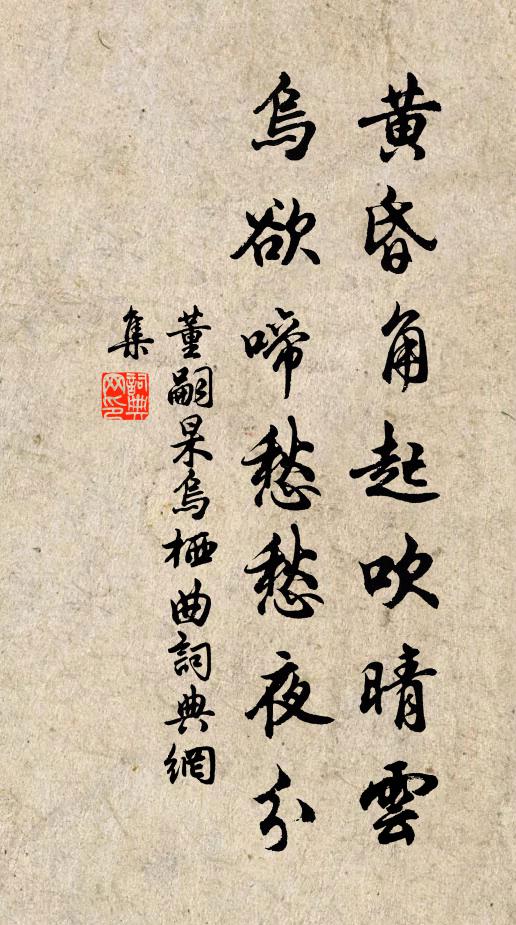 黄昏角起吹晴雲
烏欲啼愁愁夜分
董嗣杲烏栖曲詞典網
集
詞典
网印